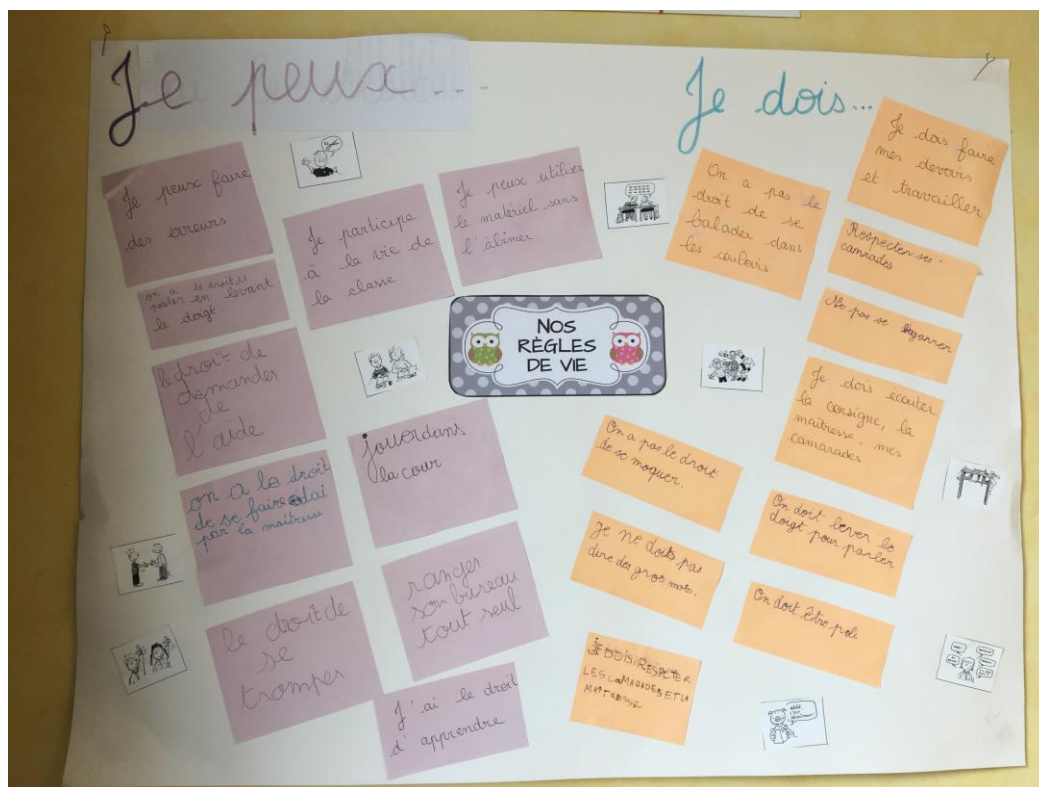 Je peux...
Je peux faire
des erreurs
on a le droit de
parler en levant
le doigt.
le droit de
demander
de
l'aide
on a le droit
de se faire edai
par la maitresse
le droit de
se
tromper
Je participe
à la vie de
la classe
Je peux utiliser
le matériel sans
l'âbimer
jouer dans
la cour
ranger
son bureau
tout seul
J'ai le droit
d'apprendre
NOS
RÈGLES
DE VIE
Je dois...
On a pas le
droit de se
balader dans
les couloirs
Je dois faire
mes devoirs
et travailler
Respecter ses
camrades
Ne pas se bagarrer
Je dois écouter
la consigne, la
maîtresse, mes
camarades.
On a pas le droit
de se moquer.
Je ne dois pas
dire des gros mots.
JE DOIS RESPECTER
LES CAMARADES ET LA
MAITRESSE
On doit lever le
doigt pour parler
On doit être poli